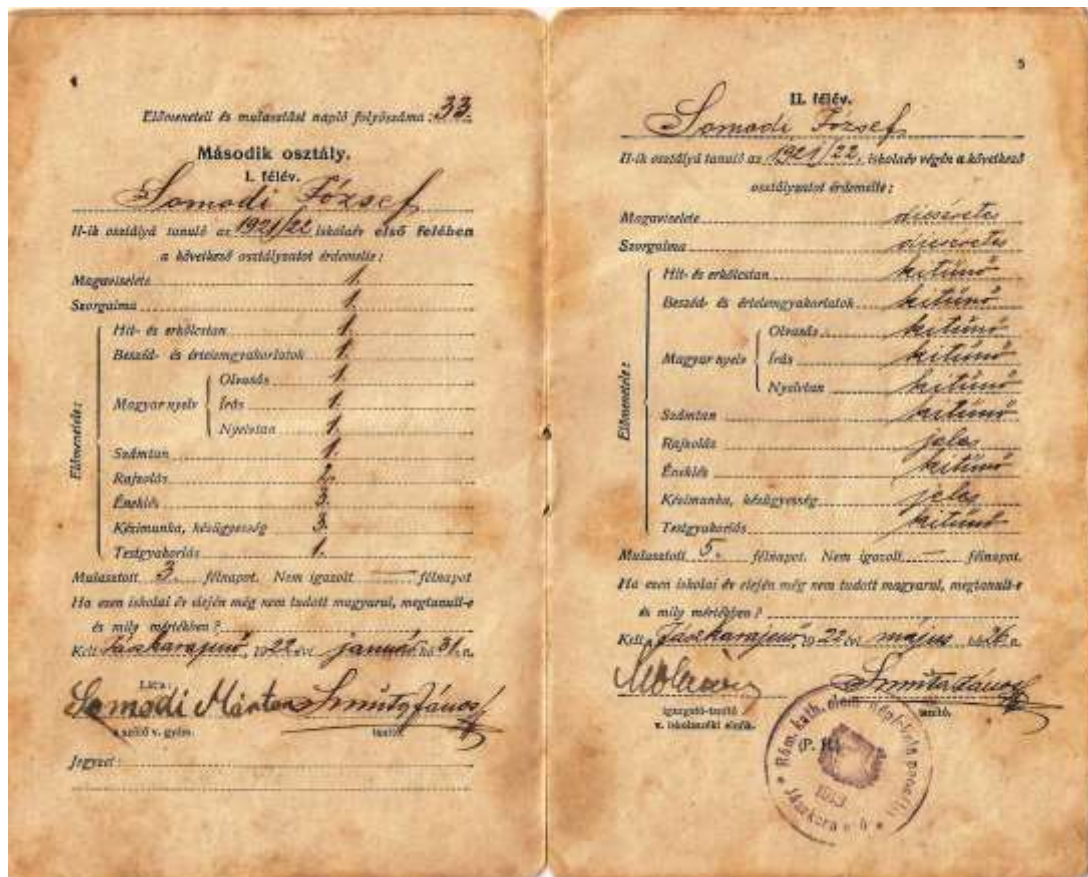 Előmeneteli és mulasztási napló folyószáma: 33.
Második osztály.
I. félév.
Somodi József
II-ik osztályú tanuló az 1921/22 iskolaév első felében
a következő osztályzatot érdemelte:
Magaviselete 1.
Szorgalma 1.
Előmenetele:
Hit- és erkölcstan 1.
Beszéd- és értelemgyakorlatok 1.
Magyar nyelv
Olvasás 1.
Írás 1.
Nyelvtan 1.
Számtan 1.
Rajzolás 2.
Éneklés 3.
Kézimunka, kézügyesség 3.
Testgyakorlás 1.
Mulasztott 3. félnapot. Nem igazolt — félnapot
Ha ezen iskolai év elején még nem tudott magyarul, megtanult-e
és mily mértékben?
Kelt Jászkarajenő, 1922 évi január hó 31.n.
Látta:
Somodi Márton János
a szülő v. gyám. tanító.
Jegyzet:
5
II. félév.
Somodi József
II-ik osztályú tanuló az 1921/22. iskolaév végén a következő
osztályzatot érdemelte:
Magaviselete dicséretes
Szorgalma dicséretes
Előmenetele:
Hit- és erkölcstan kitűnő
Beszéd- és értelemgyakorlatok kitűnő
Magyar nyelv
Olvasás kitűnő
Írás kitűnő
Nyelvtan kitűnő
Számtan kitűnő
Rajzolás jeles
Éneklés kitűnő
Kézimunka, kézügyesség jeles
Testgyakorlás kitűnő
Mulasztott 5. félnapot. Nem igazolt — félnapot.
Ha ezen iskolai év elején még nem tudott magyarul, megtanult-e
és mily mértékben?
Kelt Jászkarajenő, 1922 évi május hó 26 n.
János
igazgató-tanító tanító.
v. iskolaszéki elnök.
(P. H.)
Róm. kath. elem. népiskola
1913